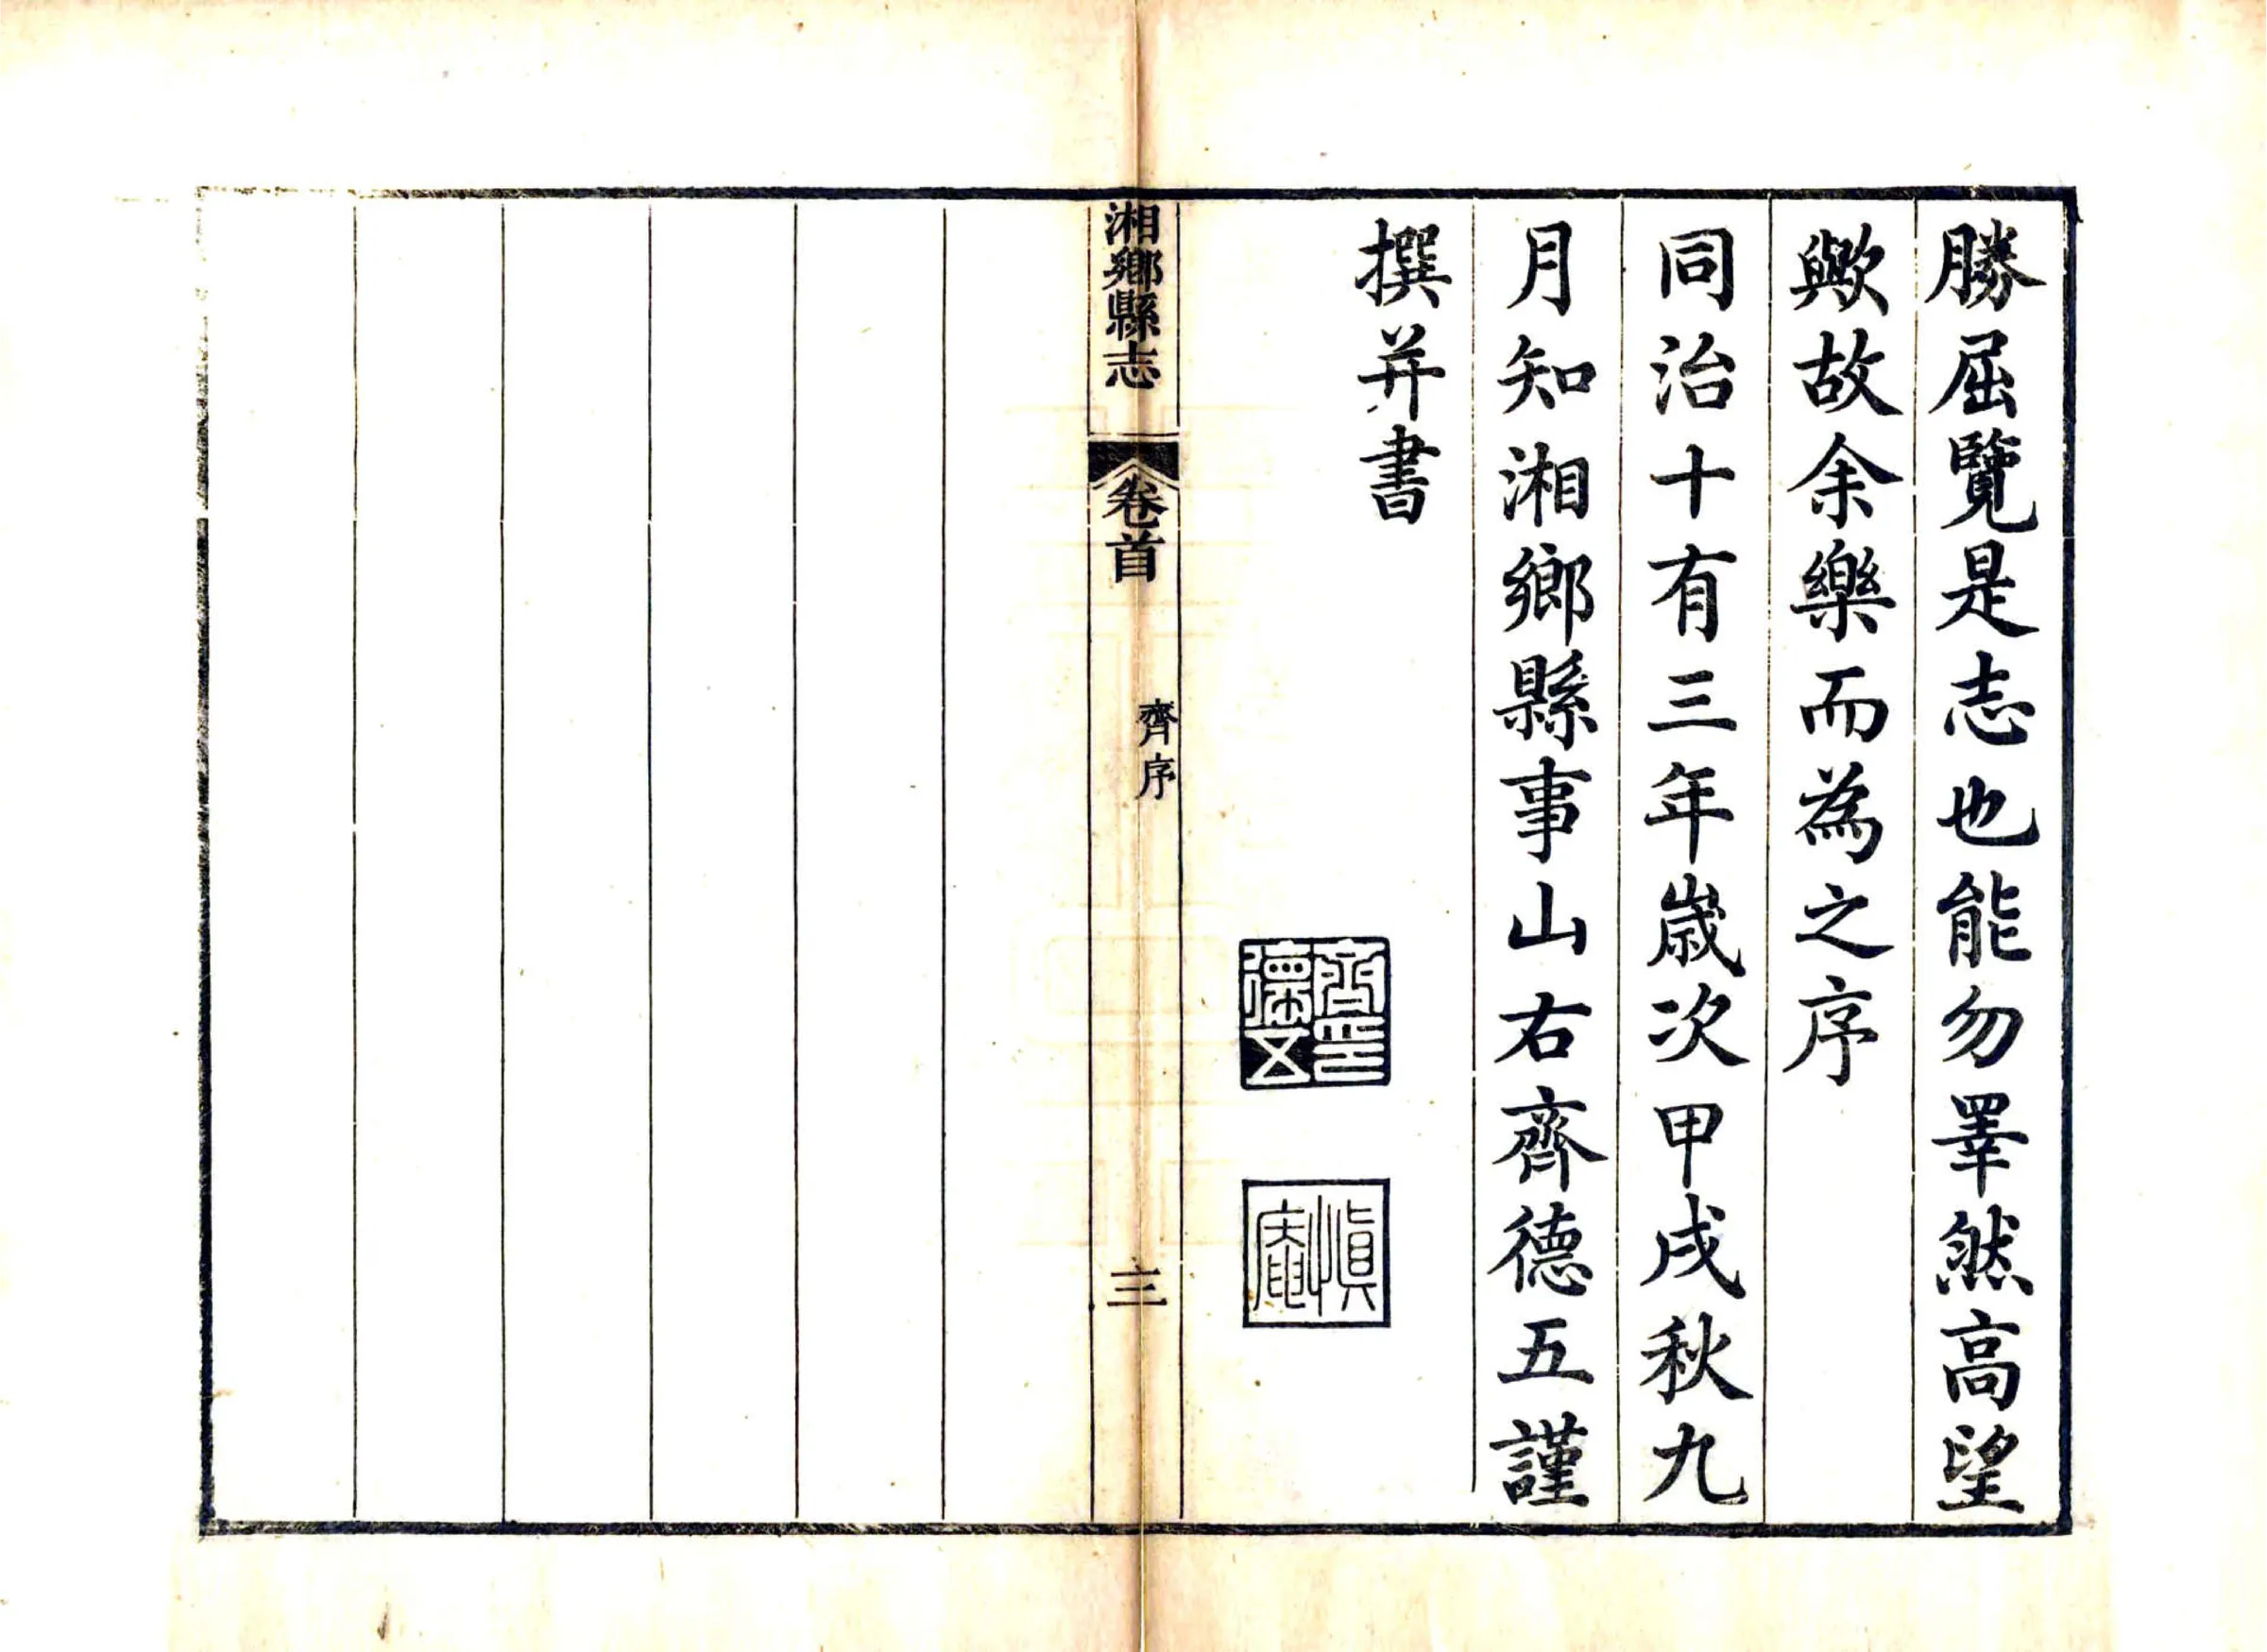 勝屈覽是志也能勿睪然高望
歟故余樂而為之序
同治十有三年歲次甲戌秋九
月知湘鄉縣事山右齊德五謹
撰并書
齊德五印
慎庵
湘鄉縣志
卷首
齊序
三